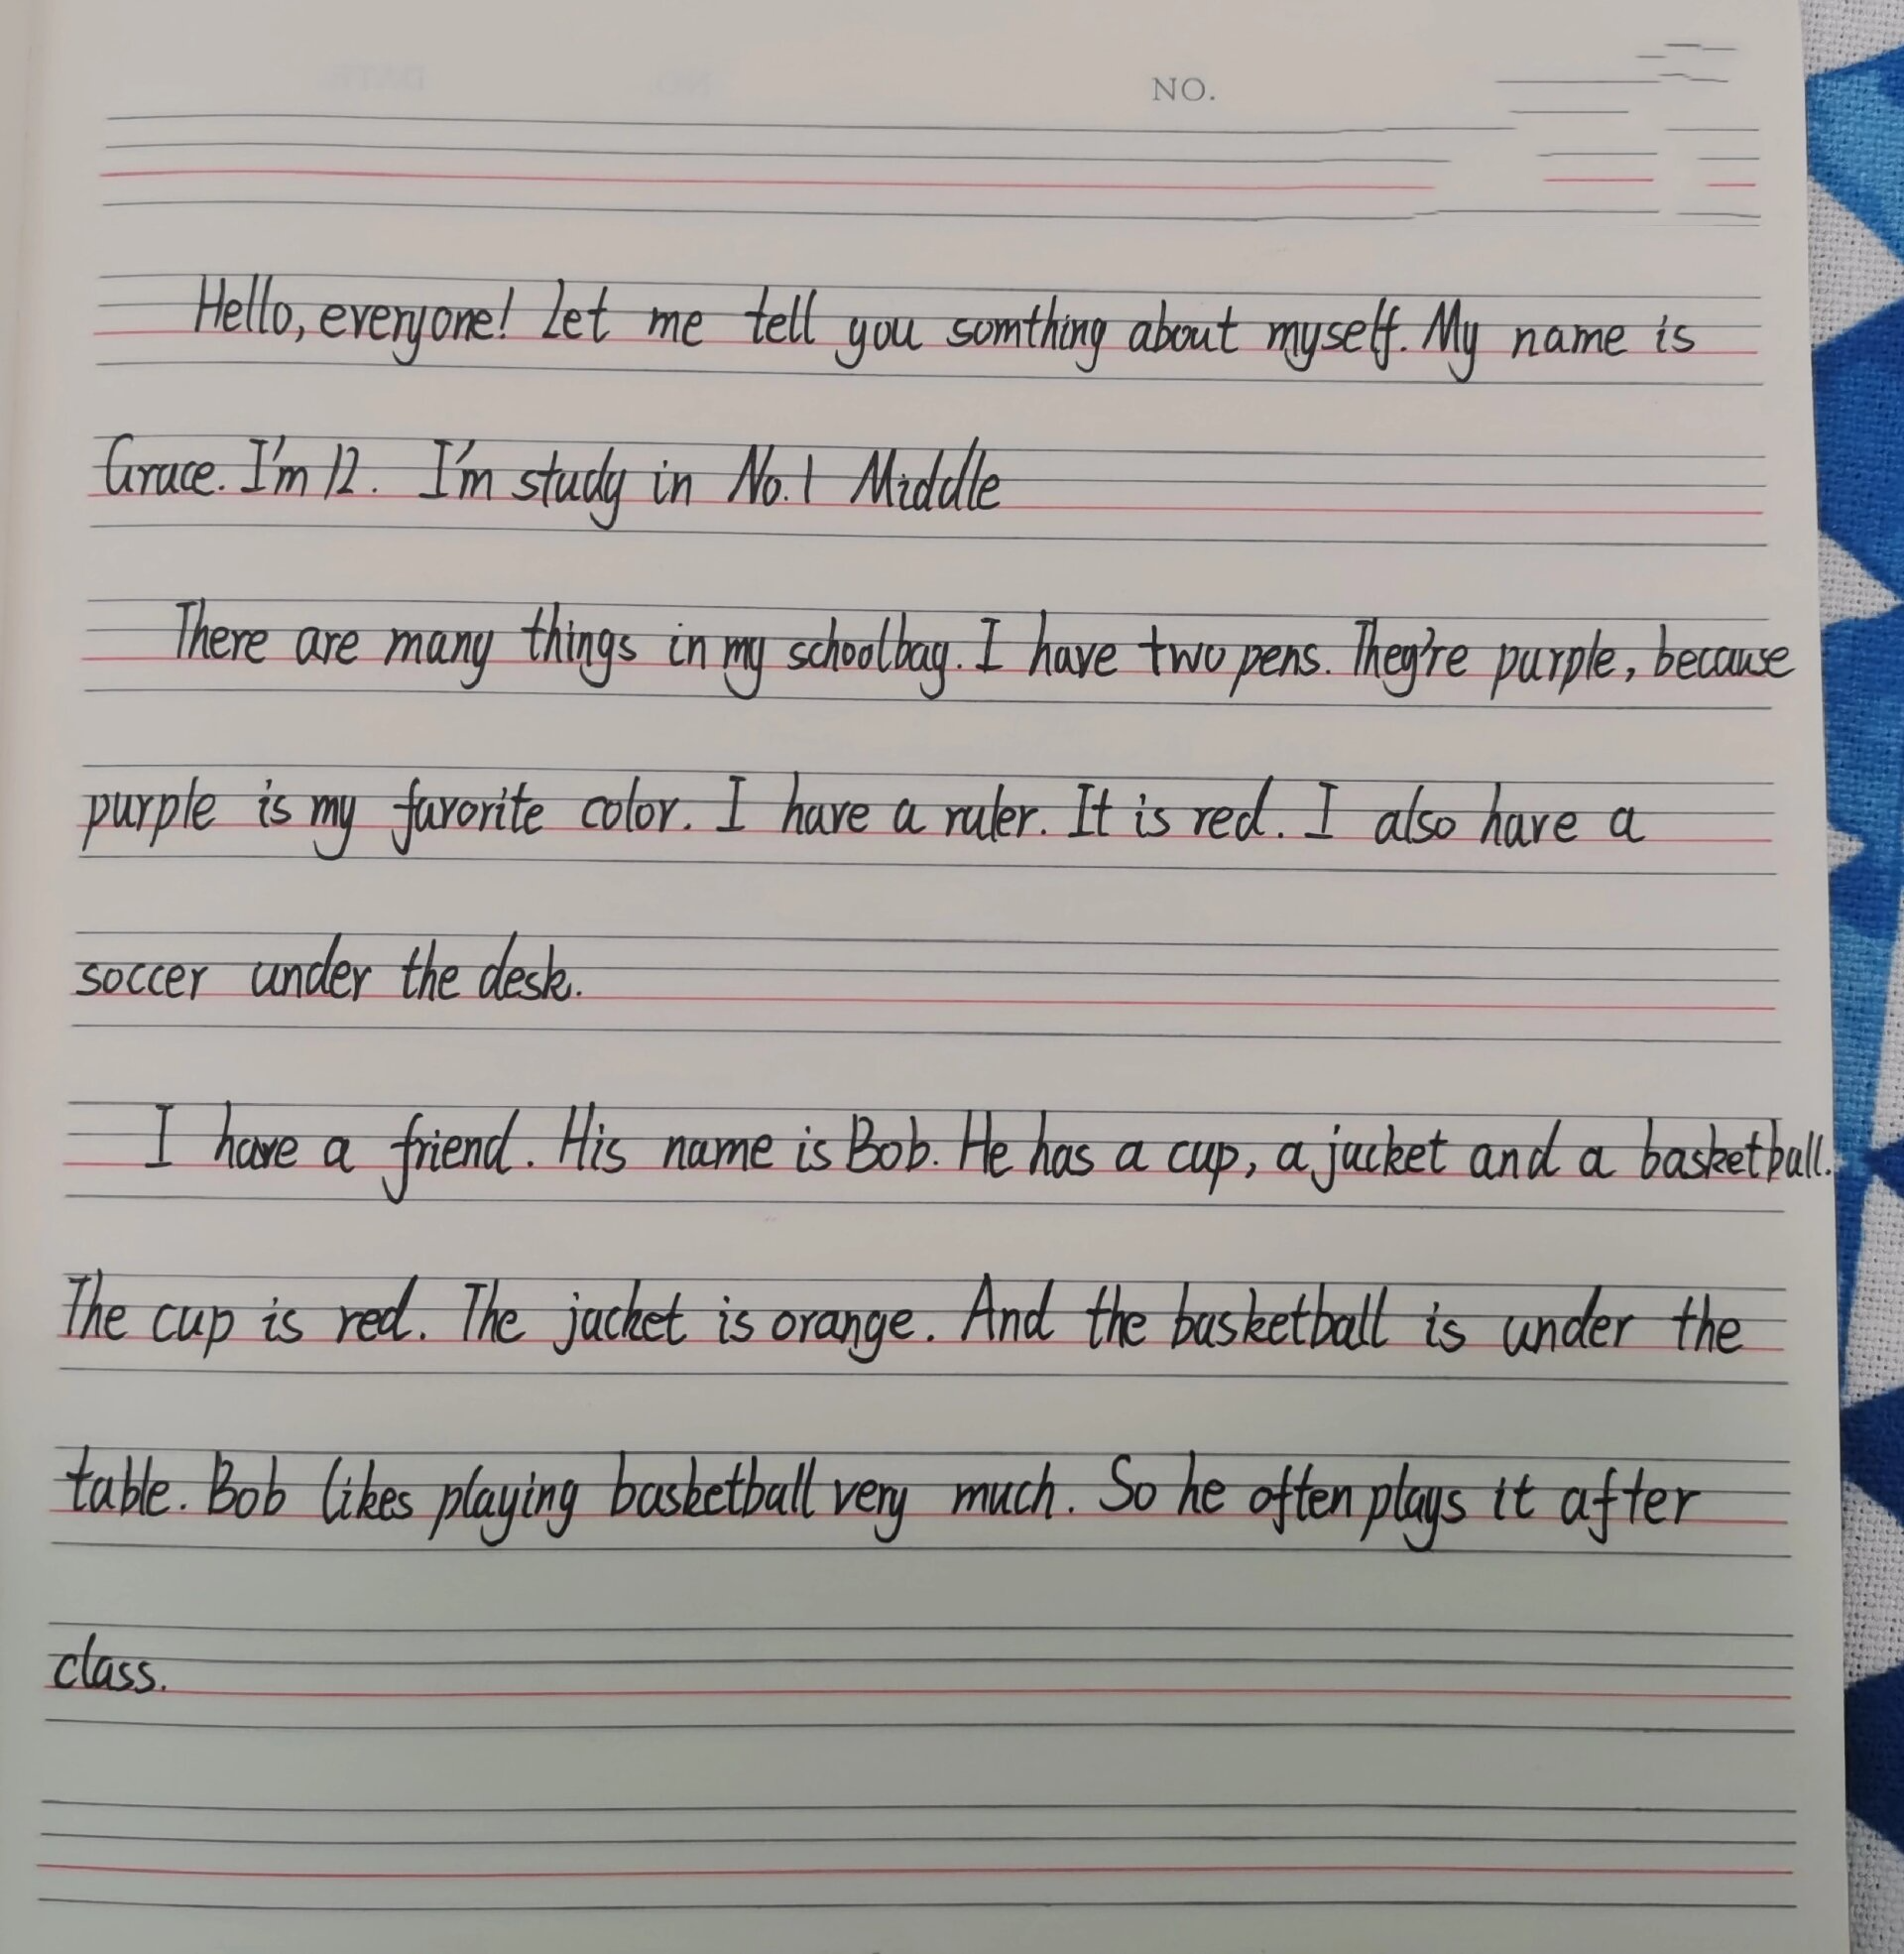 NO.
Hello, everyone! Let me tell you somthing about myself. My name is
Grace. I'm 12. I'm study in No.1 Middle
There are many things in my schoolbag. I have two pens. They're purple, because
purple is my favorite color. I have a ruler. It is red. I also have a
soccer under the desk.
I have a friend. His name is Bob. He has a cup, a jacket and a basketball.
The cup is red. The jacket is orange. And the basketball is under the
table. Bob likes playing basketball very much. So he often plays it after
class.